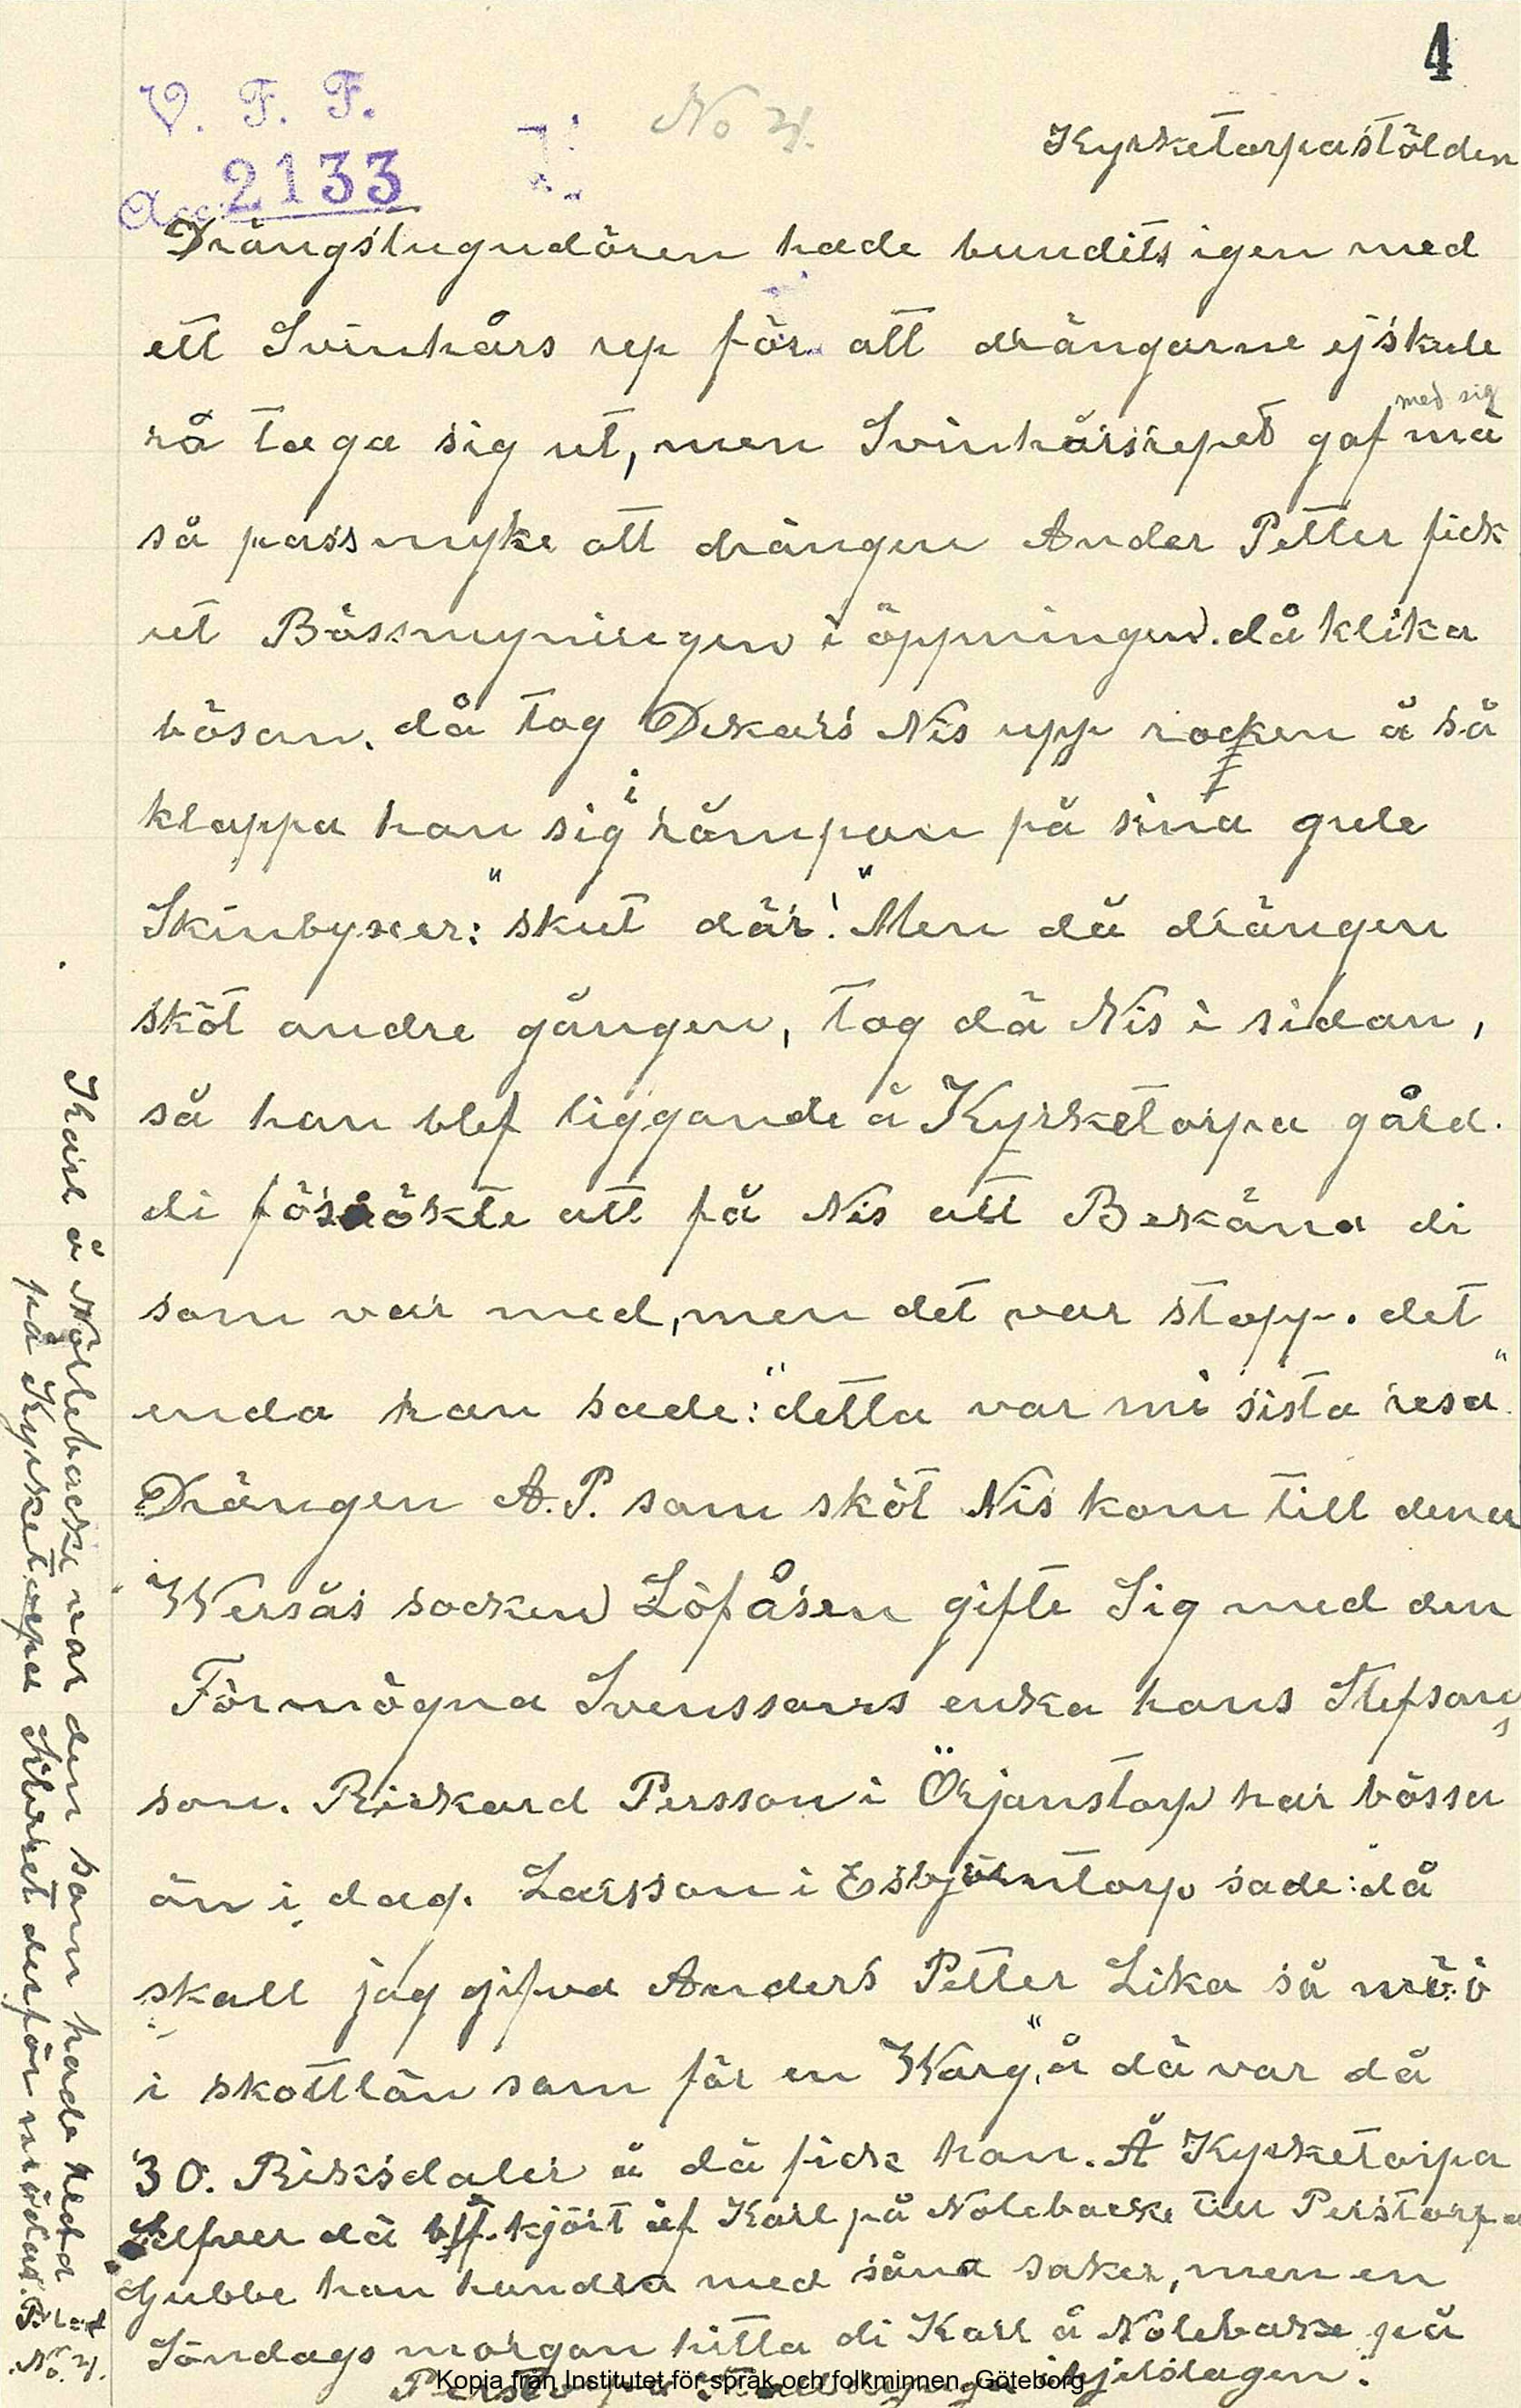 4
V. F. F.
No 21.
Kyrketorpastölden
Acc. 2133
Drängstugudören hade bundits igen med
ett Svinhårs rep för att drängarne ej skule
rå taga sig ut, men Svinhårsrepet gaf med sig
så pass myke att drängen Ander Petter fick
ut Bössmyningen i öppningen. då klika
bösan. då tog Dekars Nis upp rocken å så
klappa han sig i römpan på sina gule
Skinbyxer: "skut där!" Men då drängen
sköt andre gången, tog dä Nis i sidan,
så han blef liggande å Kyrketorpa gård.
di försökte att få Nis att Bekäna di
som var med, men det var stopp. det
enda han sade: "detta var mi sista resa"
Drängen A.P. som sköt Nis kom till dena
Wersås socken Löfåsen gifte Sig med den
Förmögna Svenssons enka hans Stefsons
son. Rickard Persson i Örjanstorp har bössa
än i dag. Larsson i Esbjörntorp sade: då
skall jag gifva Anders Petter Lika så
i skottlön som för en Warg," å dä var då
30. Riksdaler å dä fick han. Å Kyrketorpa
Selfver dä kjört af Karl på Nolebacke till Perstorpa
Gubbe han handla med såna saker, men en
Söndags morgon hitta di Karl å Nolebacke på
ihjelslagen.
Kharl å Nöllebacke var den som hade
på Kyrketorpa silvret derför mördad. Blad
No. 21.
Kopia från Institutet för språk och folkminnen, Göteborg